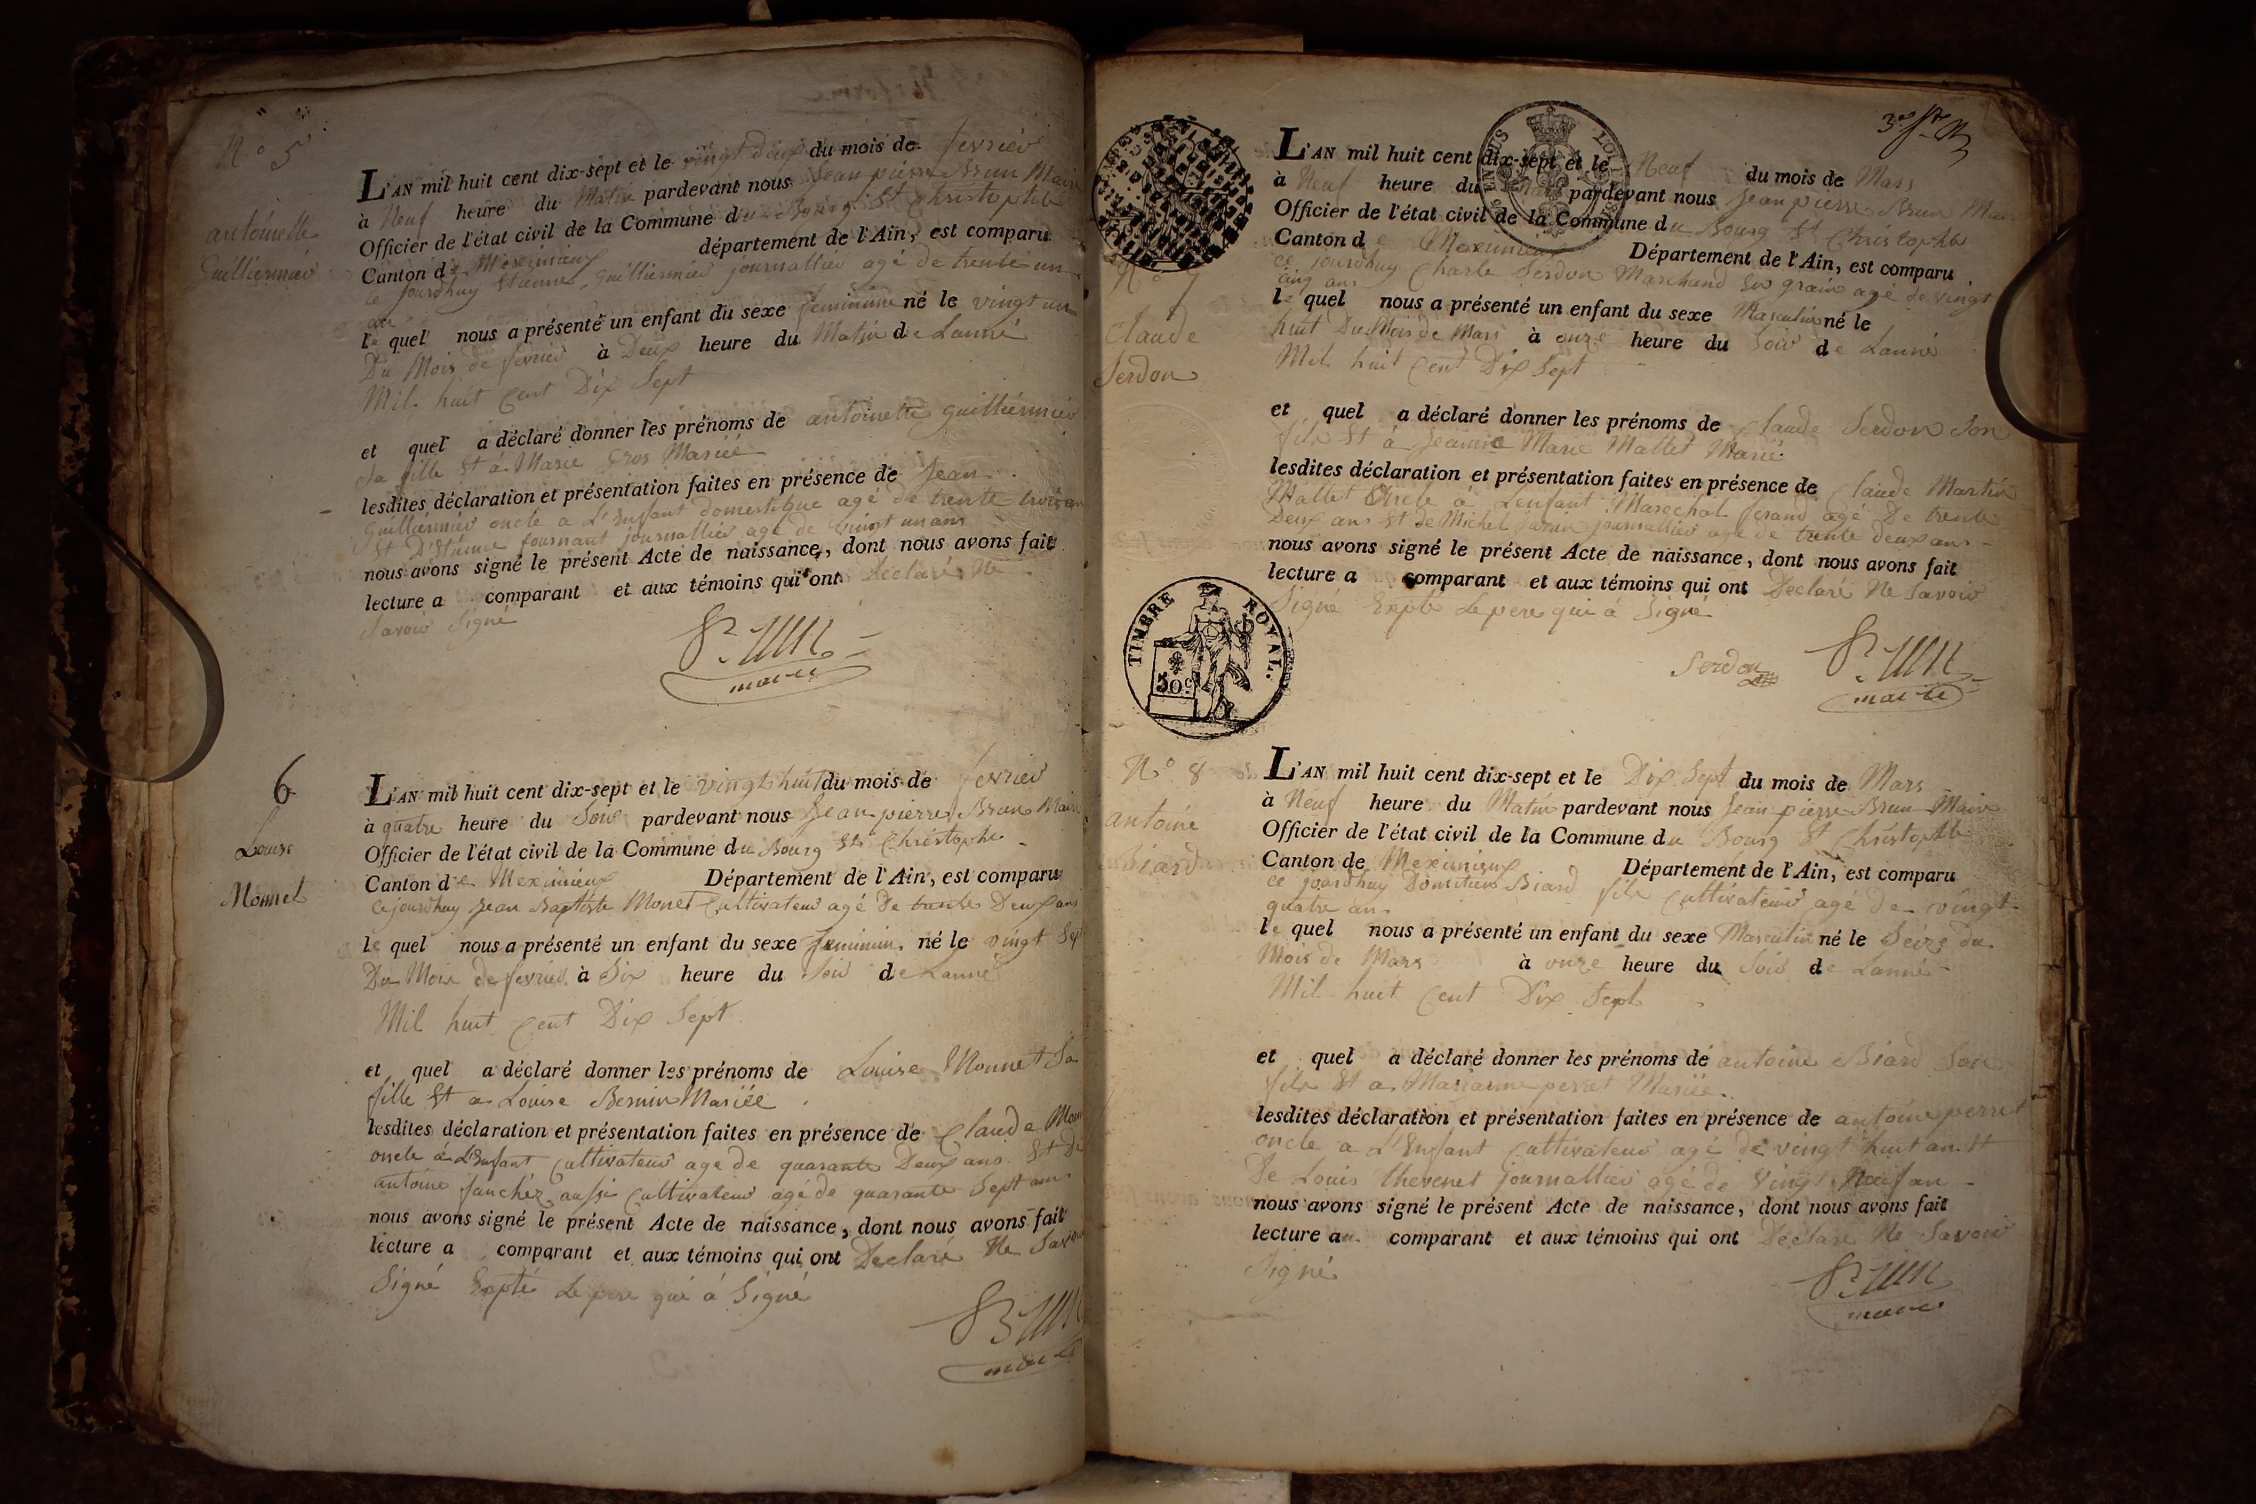 N.º 5
antoinette
Guilliermier
L'AN mil huit cent dix-sept et le vingt deux du mois de fevrier
à Neuf heure du Matin pardevant nous Jean pierre Brun Maire
Officier de l'état civil de la Commune du Bourg St Christophe
Canton de Meximieux département de l'Ain, est comparu
ce jourdhuy Etienne Guilliermier journallier agé de trente un
an
le quel nous a présenté un enfant du sexe feminine né le vingt un
Du Mois de fevrier à Deux heure du Matin de Lanné
Mil huit Cent Dix Sept
et quel a déclaré donner les prénoms de antoinette guilliermier
Sa fille Et á Marie Gros Mariéé
lesdites déclaration et présentation faites en présence de Jean
Guilliermier oncle a L'Enfant domestique agé de trente trois an
Et D'Etienne journallier agé de vingt un ans
nous avons signé le présent Acte de naissance, dont nous avons fait
lecture a comparant et aux témoins qui ont Déclaré Ne
Savoir Signé
Brun
maire
6
Louise
Monnet
L'AN mil huit cent dix-sept et le vingt huit du mois de fevrier
à quatre heure du Soir pardevant nous Jean pierre Brun Maire
Officier de l'état civil de la Commune du Bourg St Christophe
Canton de Meximieux Département de l'Ain, est comparu
ce jourdhuy Jean Baptiste Monet Cultivateur agé De trente Deux ans
le quel nous a présenté un enfant du sexe feminin né le vingt Sept
Du Mois de fevrier à Six heure du Soir de Lanné
Mil huit Cent Dix Sept
et quel a déclaré donner les prénoms de Louise Monnet Sa
fille Et a Louise Bernin Mariéé
lesdites déclaration et présentation faites en présence de Claude
oncle á L'Enfant Cultivateur agé de quarante Deux ans Et de
antoine fanchéz aussi Cultivateur agé de quarante Sept ans
nous avons signé le présent Acte de naissance, dont nous avons fait
lecture a comparant et aux témoins qui ont Declaré Ne Savoir
Signé Exptè Le pere qui á Signé
Brun
maire
TIMBRE ROYAL.
50c
N.º 7
Claude
Serdon
L'AN mil huit cent dix-sept et le Neuf du mois de Mars
à Neuf heure du pardevant nous Jean pierre Brun Maire
Officier de l'état civil de la Commune du Bourg St Christophe
Canton de Meximieux Département de l'Ain, est comparu
ce jourdhuy Charle Serdon Marchand grain agé de vingt
cinq ans
le quel nous a présenté un enfant du sexe Masculin né le
huit Du Mois de Mars à onze heure du Soir de Lanné
Mil huit Cent Dix Sept
et quel a déclaré donner les prénoms de Claude Serdon Son
fils Et á Jeanne Marie Mallet Marié
lesdites déclaration et présentation faites en présence de Claude Martin
Mallet Oncle á L'enfant Marechal ferand agé De trente
Deux ans Et de Michel journallier agé de trente deux ans
nous avons signé le présent Acte de naissance, dont nous avons fait
lecture a comparant et aux témoins qui ont Declaré Ne Savoir
Signé Exptè Le pere qui á Signé
Serdon
Brun
maire
N.º 8
antoine
Biard
L'AN mil huit cent dix-sept et le Dix Sept du mois de Mars
à Neuf heure du Matin pardevant nous Jean pierre Brun Maire
Officier de l'état civil de la Commune du Bourg St Christophe
Canton de Meximieux Département de l'Ain, est comparu
ce jourdhuy Biard fils Cultivateur agé de vingt
quatre an
le quel nous a présenté un enfant du sexe Masculin né le Seize du
Mois de Mars à onze heure du Soir de Lanné
Mil huit Cent Dix Sept
et quel a déclaré donner les prénoms de antoine Biard Son
fils Et a Marianne perret Mariéé
lesdites déclaration et présentation faites en présence de antoine perret
oncle a L'Enfant Cultivateur agé de vingt huit an Et
De Louis thevenet journallier agé de vingt Neuf an
nous avons signé le présent Acte de naissance, dont nous avons fait
lecture au comparant et aux témoins qui ont Declaré Ne Savoir
Signé
Brun
maire